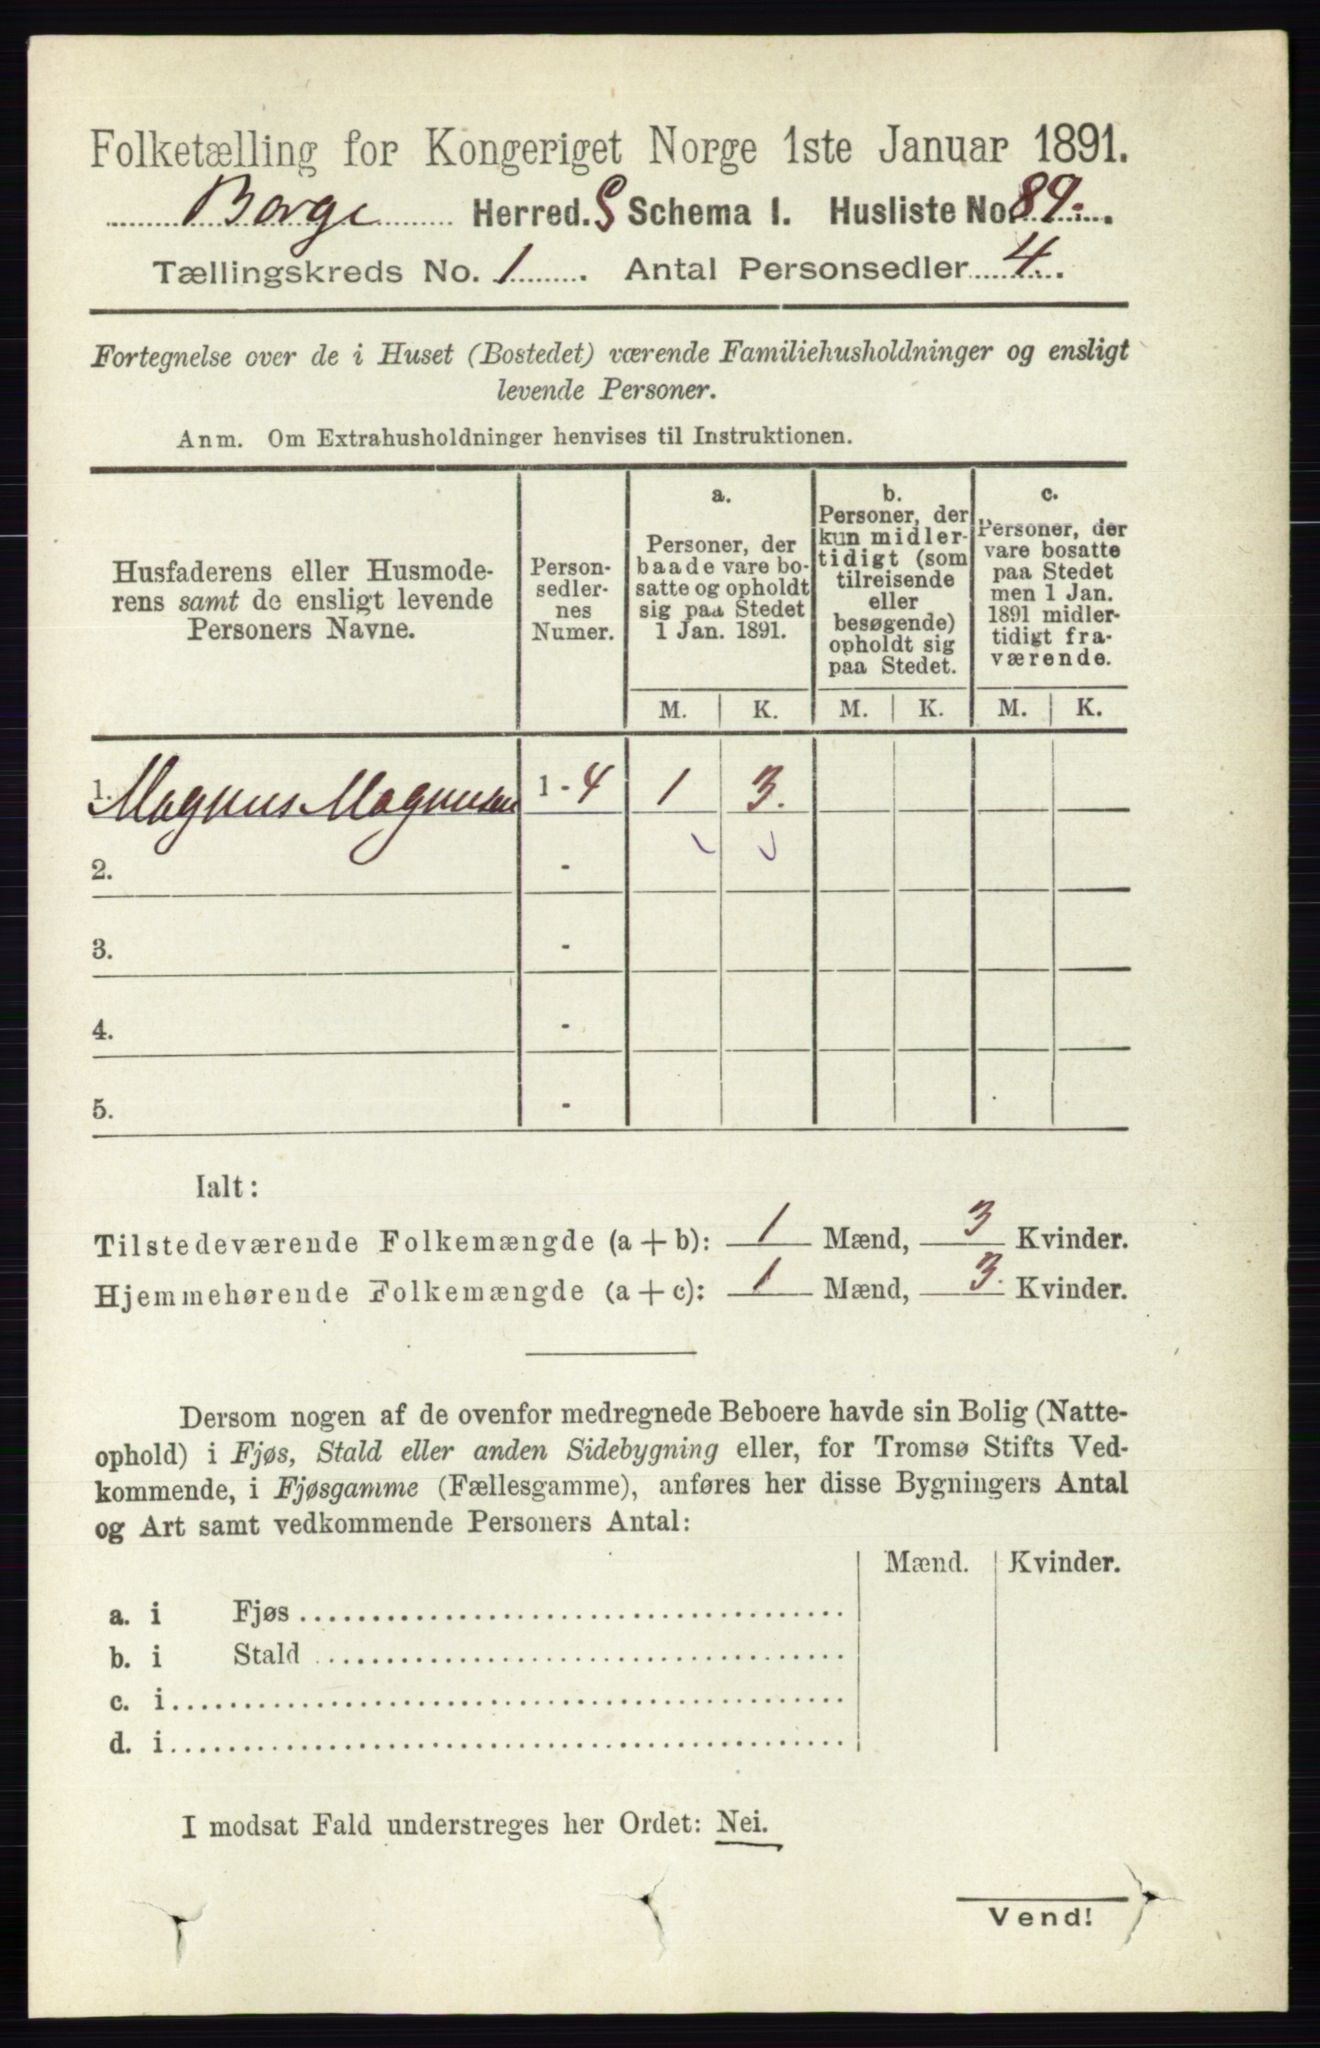 Folketælling for Kongeriget Norge 1ste Januar 1891.
Borge Herred. S Schema 1. Husliste No. 89.
Tællingskreds No. 1. Antal Personsedler 4.
Fortegnelse over de i Huset (Bostedet) værende Familiehusholdninger og ensligt
levende Personer.
Anm. Om Extrahusholdninger henvises til Instruktionen.
Husfaderens eller Husmode-
rens samt de ensligt levende
Personers Navne.
Person-
sedler-
nes
Numer.
a.
Personer, der
baade vare bo-
satte og opholdt
sig paa Stedet
1 Jan. 1891.
b.
Personer, der
kun midler-
tidigt (som
tilreisende
eller
besøgende)
opholdt sig
paa Stedet.
c.
Personer, der
vare bosatte
paa Stedet
men 1 Jan.
1891 midler-
tidigt fra-
værende.
M. K. M. K. M. K.
1. Magnus Magnusen 1 - 4 1 3.
2. -
3. -
4. -
5. -
Ialt:
Tilstedeværende Folkemængde (a + b): 1 Mænd, 3 Kvinder.
Hjemmehørende Folkemængde (a + c): 1 Mænd, 3. Kvinder.
Dersom nogen af de ovenfor medregnede Beboere havde sin Bolig (Natte-
ophold) i Fjøs, Stald eller anden Sidebygning eller, for Tromsø Stifts Ved-
kommende, i Fjøsgamme (Fællesgamme), anføres her disse Bygningers Antal
og Art samt vedkommende Personers Antal:
Mænd. Kvinder.
a. i Fjøs
b. i Stald
c. i
d. i
I modsat Fald understreges her Ordet: Nei.
Vend!